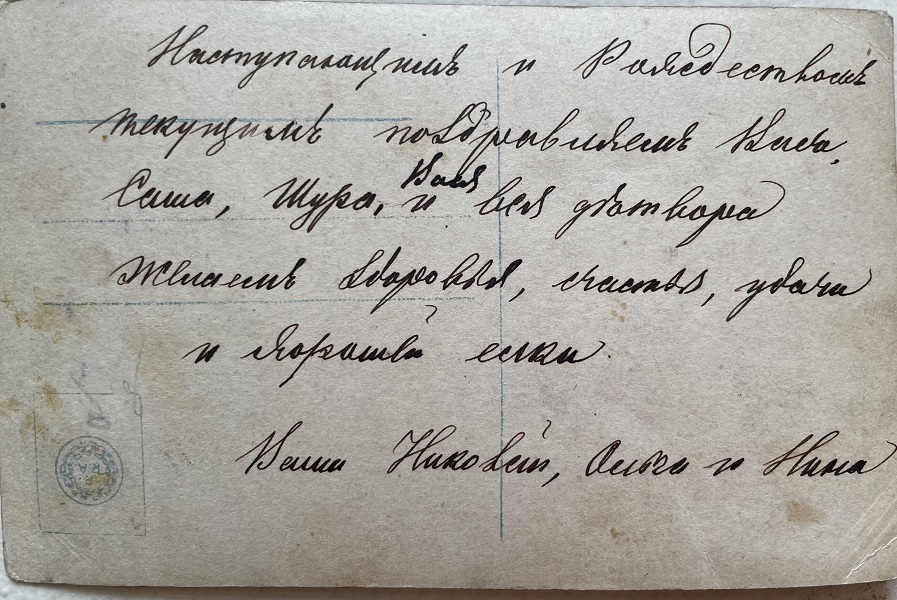 Наступающимъ и Рождествомъ
текущимъ поздравляемъ Васъ,
Саша, Шура, Валя и вся дѣтвора
желаемъ здоровья, счастья, удачи
и хорошей елки.
Ваши Николай, Ольга и Нина